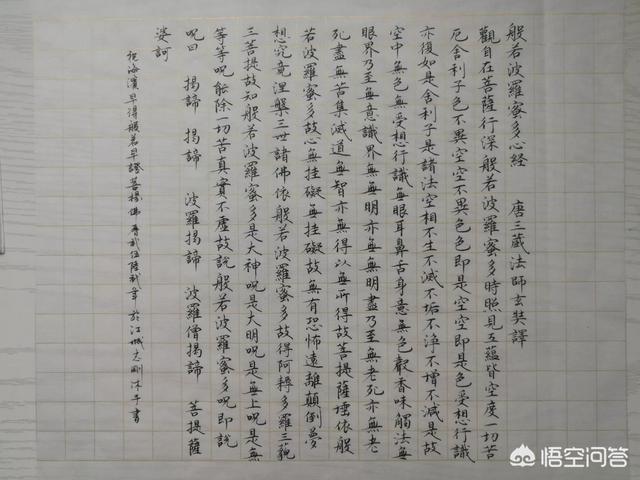 般若波羅蜜多心経 唐三藏法師玄奘譯
觀自在菩薩行深般若波羅蜜多時照見五蘊皆空度一切苦
厄舍利子色不異空空不異色色即是空空即是色受想行識
亦復如是舍利子是諸法空相不生不滅不垢不淨不增不減是故
空中無色無受想行識無眼耳鼻舌身意無色聲香味觸法無
眼界乃至無意識界無無明亦無無明盡乃至無老死亦無老
死盡無苦集滅道無智亦無得以無所得故菩提薩埵依般
若波羅蜜多故心無挂礙無挂礙故無有恐怖遠離顛倒夢
想究竟涅槃三世諸佛依般若波羅蜜多故得阿耨多羅三藐
三菩提故知般若波羅蜜多是大神呪是大明呪是無上呪是無
等等呪能除一切苦真實不虛故說般若波羅蜜多呪即說
呪曰 揭諦 揭諦 波羅揭諦 波羅僧揭諦 菩提薩
婆訶
祝海濱早得般若早證菩提 佛曆貳伍陸年於江城志剛沐手書
悟空问答